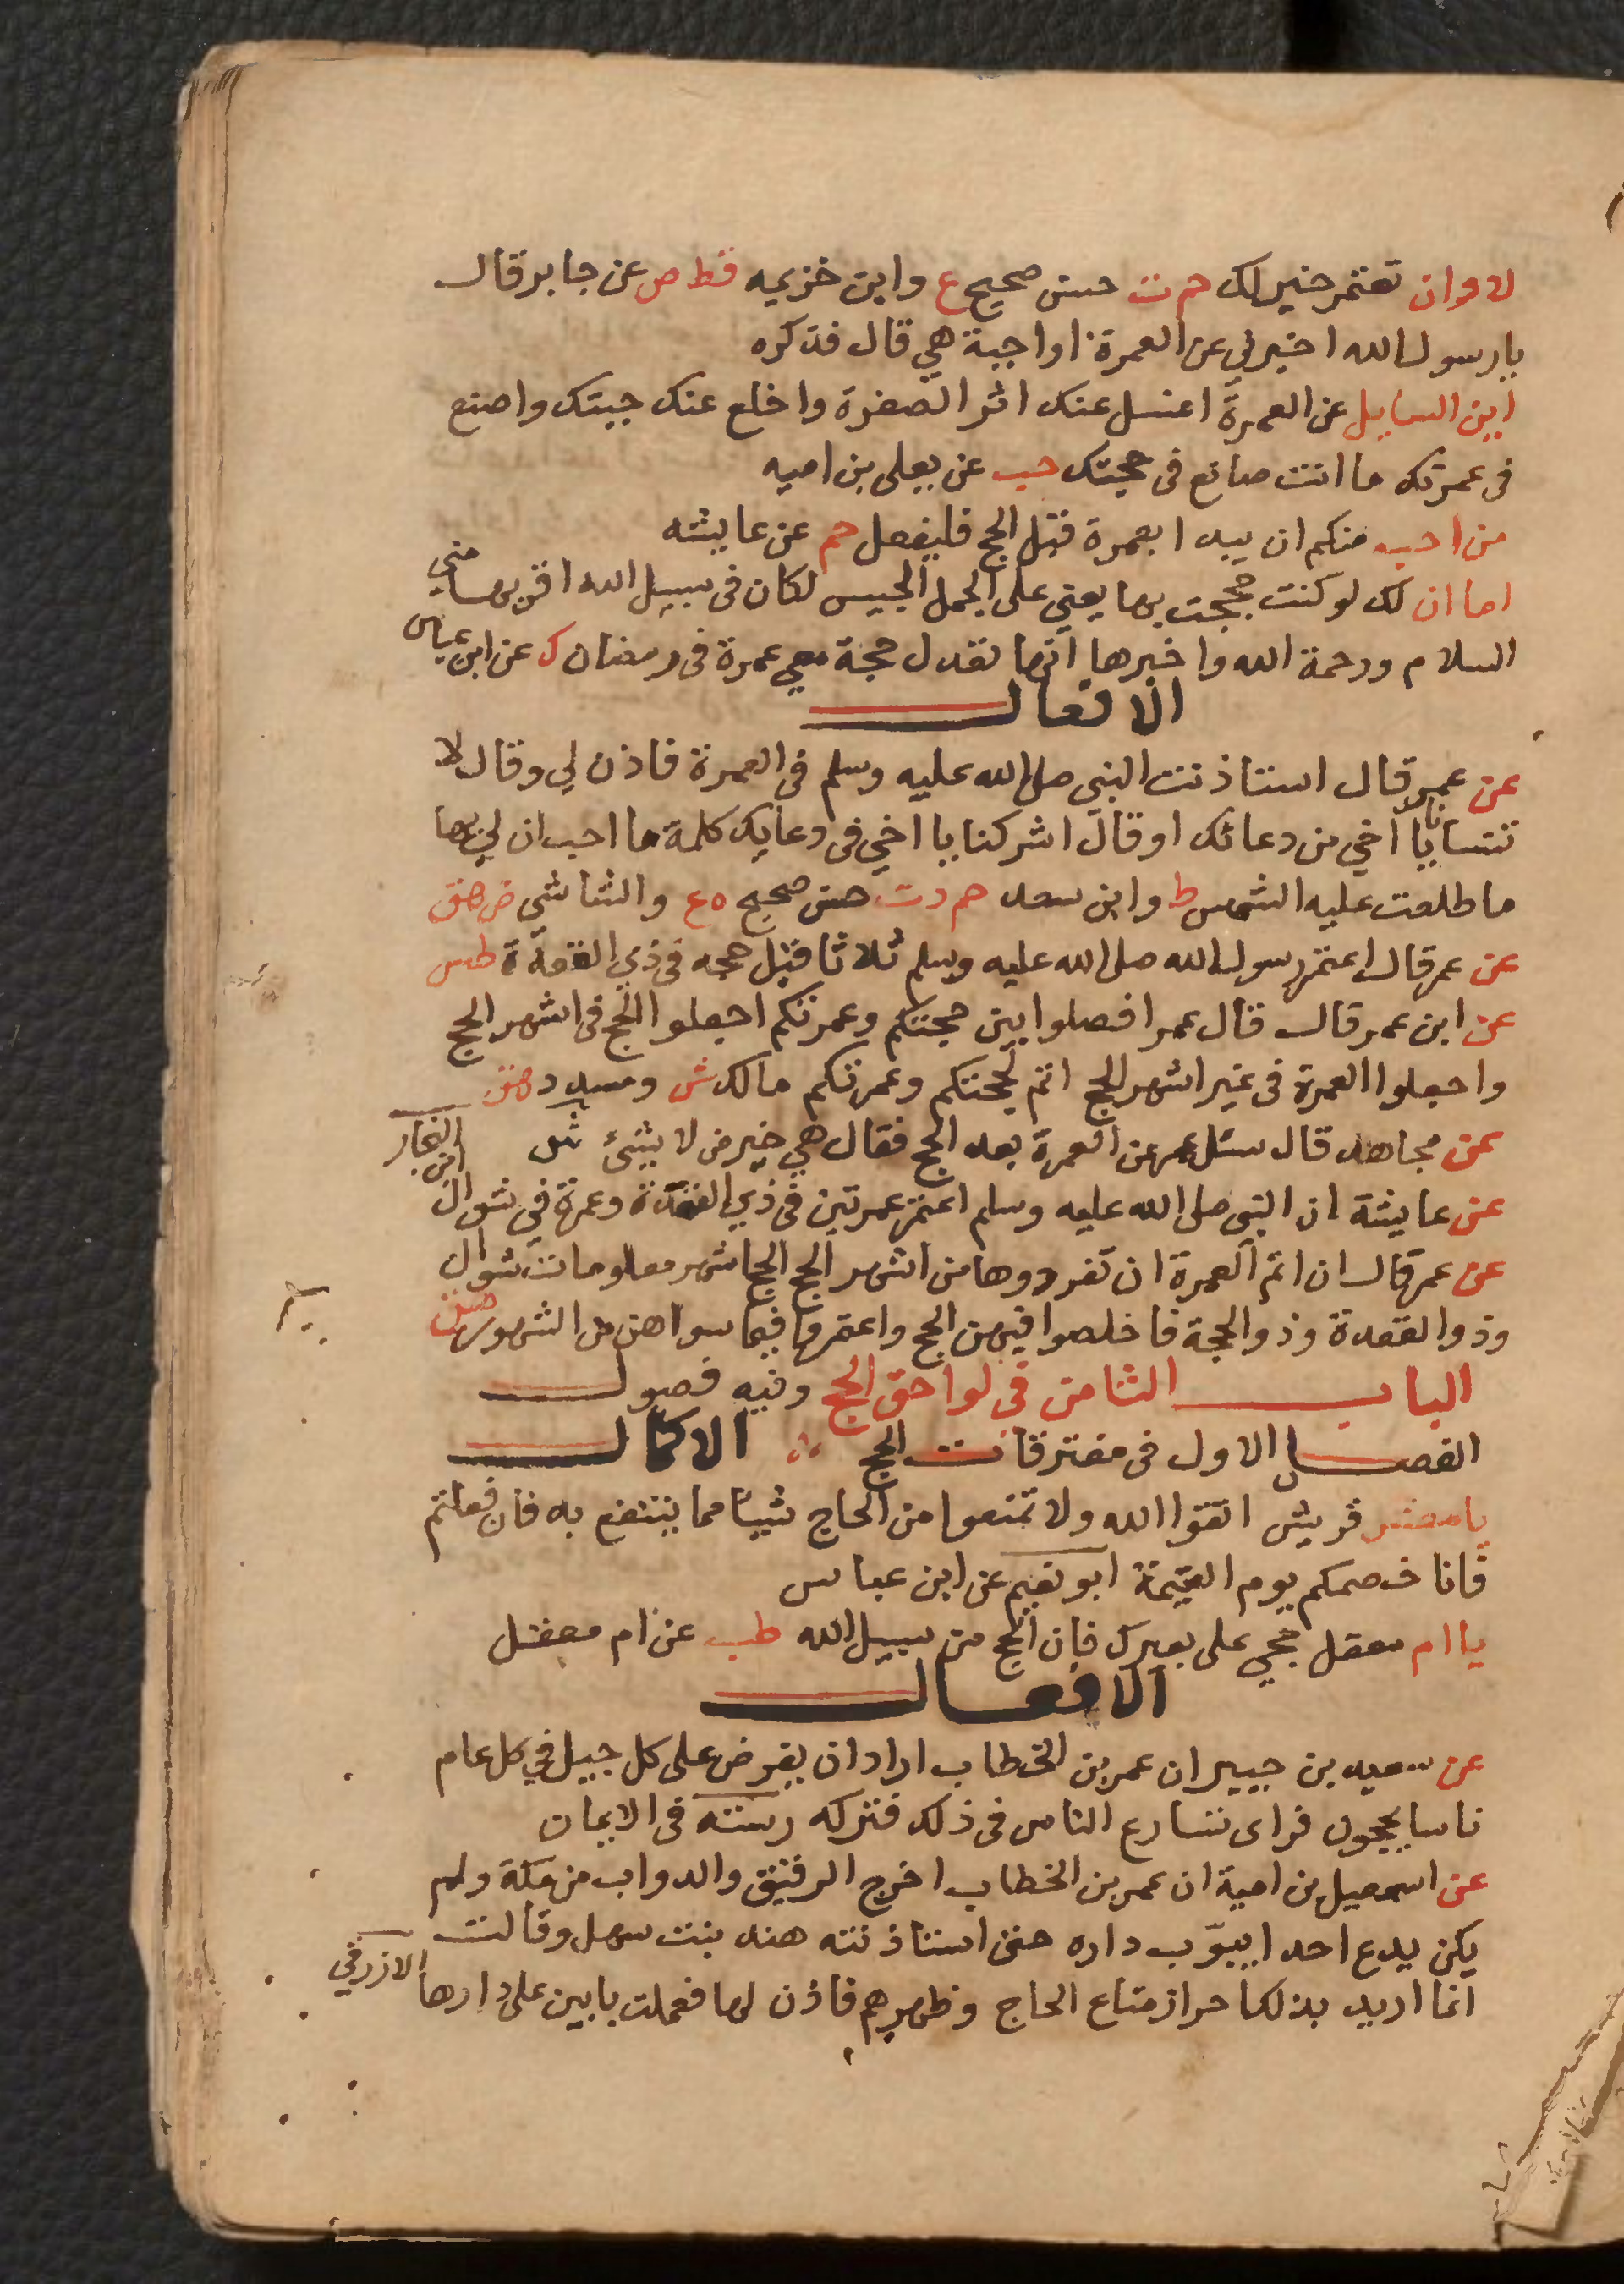 لا وان تعتمر خير لك حم ت حسن صحيح ع وابن خزيمه قط ص عن جابر قال
يا رسول الله اخبرني عن العمرة اواجبة هي قال فذكره
اين السايل عن العمرة اغسل عنك اثر الصفرة واخلع عنك جبتك واصنع
في عمرتك ما انت صانع في حجتك حب عن يعلى بن اميه
من احب منكم ان يبدا بعمرة قبل الحج فليفعل حم عن عايشه
اما ان لك لو كنت حججت بها يعني على الجمل الحبيس لكان في سبيل الله اقربها مني
السلام ورحمة الله واخبرها انها تعدل حجة معي عمرة في رمضان ك عن ابن عباس
الافعال
عن عمر قال استاذنت النبي صلى الله عليه وسلم في العمرة فاذن لي وقال لا
تنسانا يا اخي من دعائك او قال اشركنا يا اخي في دعايك كلمة ما احب ان لي بها
ما طلعت عليه الشمس ط وابن سعد حم د ت حسن صحيح ه ع والشاشي ض هق
عن عمر قال اعتمر رسول الله صلى الله عليه وسلم ثلاثا قبل حجه في ذي القعدة طس
عن ابن عمر قال قال عمر افصلوا بين حجتكم وعمرتكم اجعلوا الحج في اشهر الحج
واجعلوا العمرة في غير اشهر الحج اتم لحجتكم وعمرتكم مالك ش ومسدد هق
عن مجاهد قال سئل عمر عن العمرة بعد الحج فقال هي خير من لا شئ ش
عن عايشة ان النبي صلى الله عليه وسلم اعتمر عمرتين في ذي القعدة وعمرة في شوال ابن النجار
عن عمر قال ان اتم العمرة ان تفردوها من اشهر الحج الحج اشهر معلومات شوال
وذو القعدة وذو الحجة فاخلصوا فيهن الحج واعتمروا فيما سواهن من الشهور هق
الباب الثامن في لواحق الحج وفيه فصول
الفصل الاول في مفترقات الحج الاكمال
يا معشر قريش اتقوا الله ولا تمنعوا من الحاج شيئا مما ينتفع به فان فعلتم
فانا خصمكم يوم القيمة ابو نعيم عن ابن عباس
يا ام معقل حجي على بعيرك فان الحج من سبيل الله طب عن ام معقل
الافعال
عن سعيد بن جبير ان عمر بن الخطاب اراد ان يفرض على كل جيل في كل عام
ناسا يحجون فراى تسارع الناس في ذلك فتركه رسته في الايمان
عن اسمعيل بن امية ان عمر بن الخطاب اخرج الرقيق والدواب من مكة ولم
يكن يدع احدا يبوّب داره حتى استاذنته هند بنت سهل وقالت
انما اريد بذلك احراز متاع الحاج وظهرهم فاذن لها فعملت بابين على دارها الازرقي